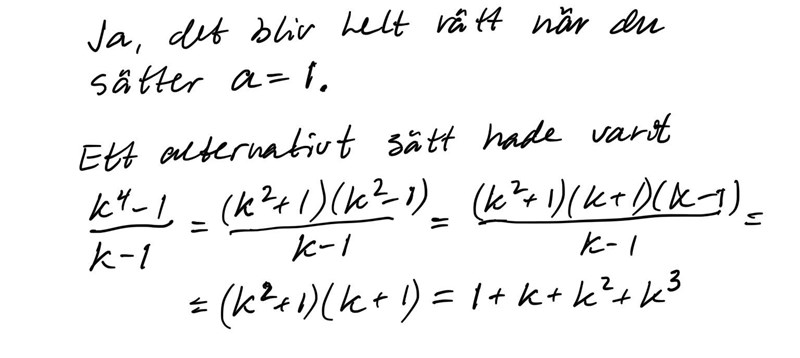 Ja, det blir helt rätt när du
sätter a = 1.
Ett alternativt sätt hade varit
(k⁴-1)/(k-1) = (k²+1)(k²-1)/(k-1) = (k²+1)(k+1)(k-1)/(k-1) =
= (k²+1)(k+1) = 1+k+k²+k³